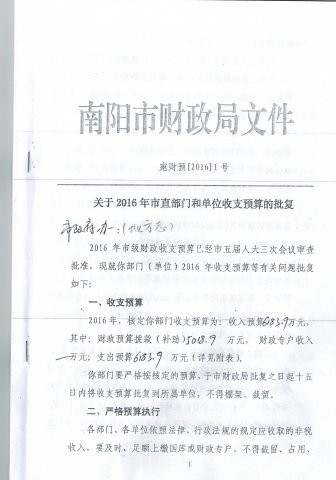 南阳市财政局文件
宛财预[2016]1号
关于2016年市直部门和单位收支预算的批复
市政府办:(地方志)
2016年市级财政收支预算已经市五届人大三次会议审查
批准,现就你部门(单位)2016年收支预算等有关问题批复
如下:
一、收支预算
2016年,核定你部门收支预算为:收入预算6183.9万元,
其中:财政预算拨款(补助)5018.9万元,财政专户收入
万元;支出预算6183.9万元(详见附表)。
你部门要严格按核定的预算,于市财政局批复之日起十五
日内将收支预算批复到所属单位,不得棚架、截留。
二、严格预算执行
各部门、各单位依照法律、行政法规的规定应收取的非税
收入,要及时、足额上缴国库或财政专户,不得截留、占用、
1